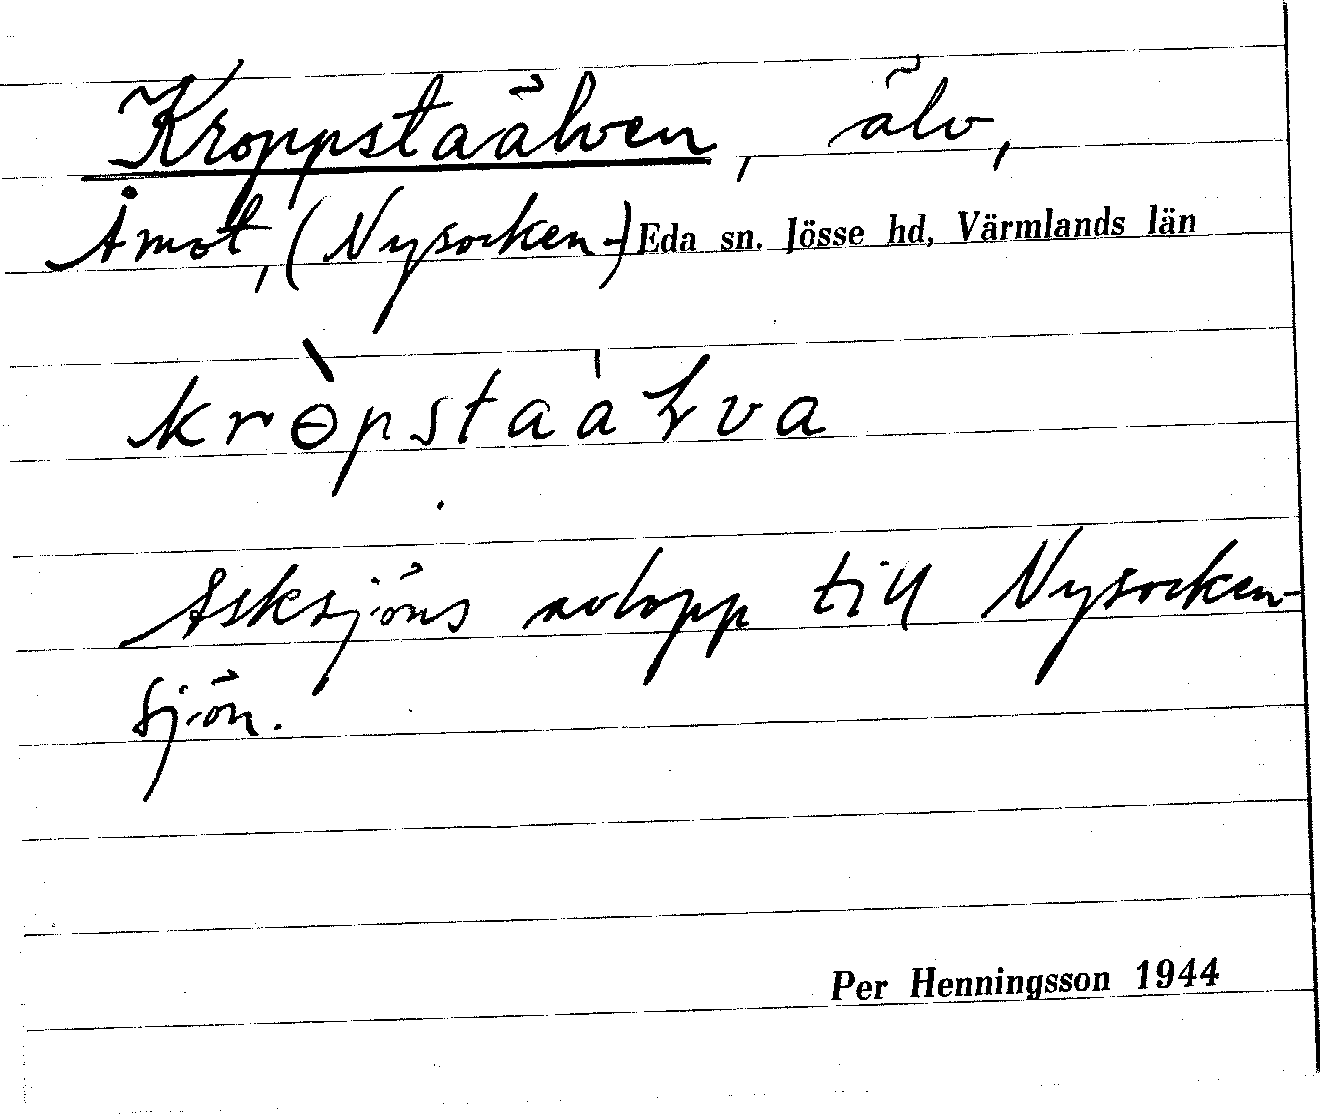 Kroppstaälven, älv,
Åmot, (Nysocken-) Eda sn. Jösse hd, Värmlands län
krɵ̀pstaáƚva
Asksjöns avlopp till Nysocken-
sjön.
Per Henningsson 1944